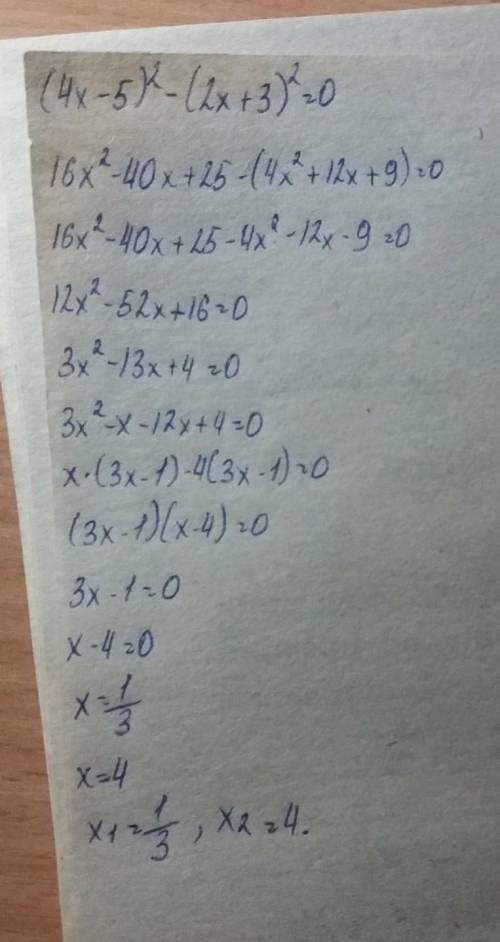 (4x-5)²-(2x+3)²=0
16x²-40x+25-(4x²+12x+9)=0
16x²-40x+25-4x²-12x-9=0
12x²-52x+16=0
3x²-13x+4=0
3x²-x-12x+4=0
x·(3x-1)-4(3x-1)=0
(3x-1)(x-4)=0
3x-1=0
x-4=0
x=1/3
x=4
x₁=1/3, x₂=4.